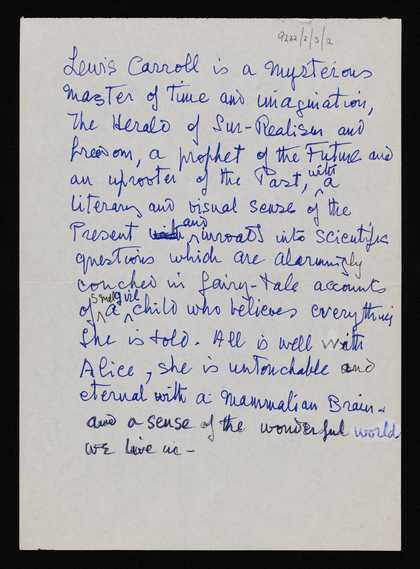 9222/2/3/2
Lewis Carroll is a mysterious
Master of Time and imagination,
The Herald of Sur-Realism and
freedom, a prophet of the Future and
an uprooter of the Past, with a
literary and visual sense of the
Present and inroads into scientific
questions which are alarmingly
couched in fairy-tale accounts
of a small girl child who believes everything
She is told. All is well with
Alice, she is untouchable and
eternal with a Mammalian Brain-
and a sense of the wonderful world
we live in-